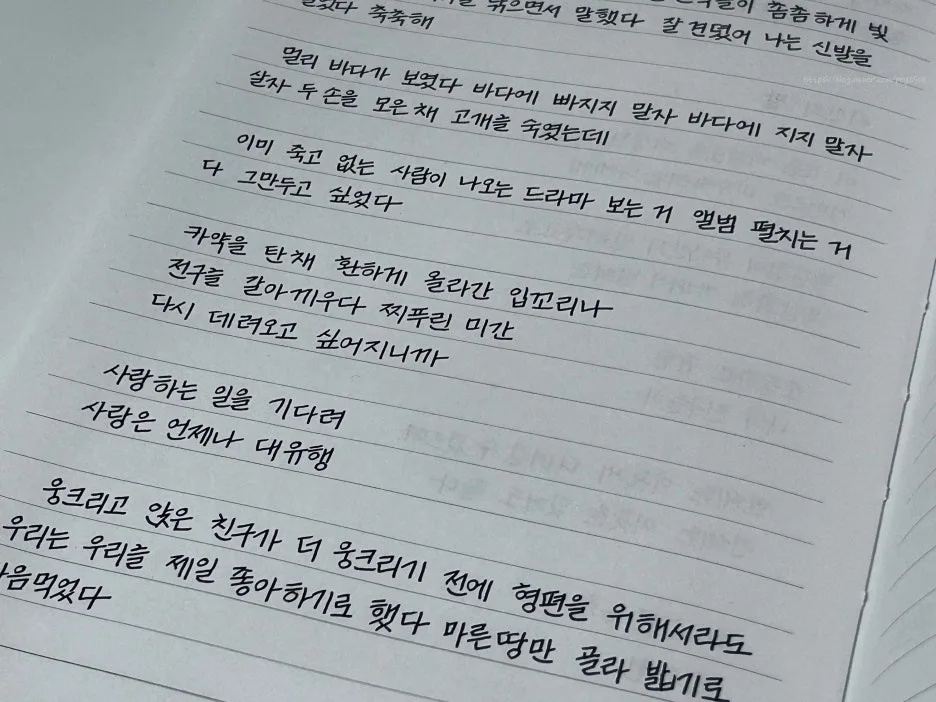 촘촘하게 빛
묶으면서 말했다 잘 견뎠어 나는 신발을
축축해
멀리 바다가 보였다 바다에 빠지지 말자 바다에 지지 말자
살자 두 손을 모은 채 고개를 숙였는데
이미 죽고 없는 사람이 나오는 드라마 보는 거 앨범 펼치는 거
다 그만두고 싶었다
카약을 탄 채 환하게 올라간 입꼬리나
전구를 갈아끼우다 찌푸린 미간
다시 데려오고 싶어지니까
사랑하는 일을 기다려
사랑은 언제나 대유행
웅크리고 앉은 친구가 더 웅크리기 전에 형편을 위해서라도
우리는 우리를 제일 좋아하기로 했다 마른 땅만 골라 밟기로
음먹었다